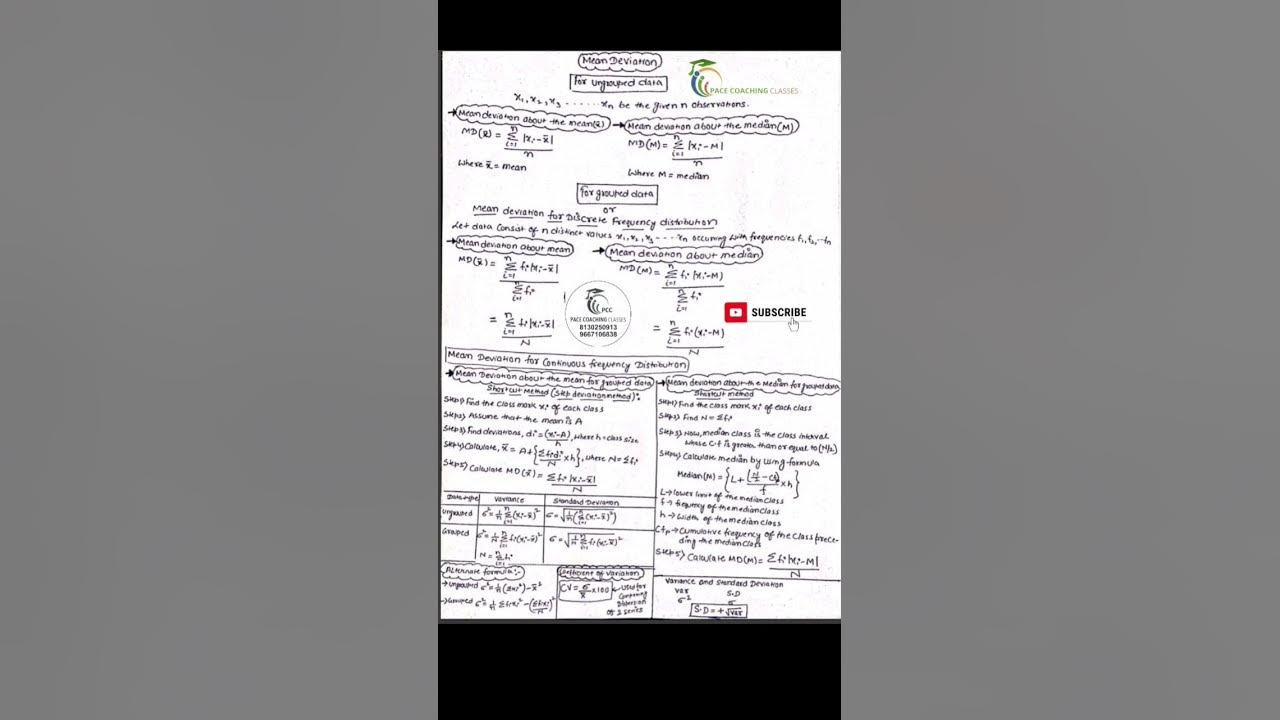 Mean Deviation
For ungrouped data
PACE COACHING CLASSES
x₁, x₂, x₃ ...... xₙ be the given n observations.
→ Mean deviation about the mean(x̄)
MD(x̄) = Σⁿᵢ₌₁ |xᵢ-x̄| / n
Where x̄ = mean
→ Mean deviation about the median(M)
MD(M) = Σⁿᵢ₌₁ |xᵢ-M| / n
Where M = median
For grouped data
or
Mean deviation for Discrete Frequency distribution
Let data consist of n distinct values x₁, x₂, x₃ .... xₙ occuring with frequencies f₁, f₂, ..fₙ
→ Mean deviation about mean
MD(x̄) = Σⁿᵢ₌₁ fᵢ |xᵢ-x̄| / Σⁿᵢ₌₁ fᵢ
= Σⁿᵢ₌₁ fᵢ |xᵢ-x̄| / N
→ Mean deviation about median
MD(M) = Σⁿᵢ₌₁ fᵢ |xᵢ-M) / Σⁿᵢ₌₁ fᵢ
= Σⁿᵢ₌₁ fᵢ (xᵢ-M) / N
PCC
PACE COACHING CLASSES
8130250913
9667106838
SUBSCRIBE
Mean Deviation for Continuous frequency Distribution
→ Mean Deviation about the mean for grouped data
Shortcut Method (Step deviation method):
Step1) Find the class mark xᵢ of each class
Step2) Assume that the mean is A
Step3) Find deviations, dᵢ = (xᵢ-A) / h, where h = class size
Step4) Calculate, x̄ = A + {Σfᵢdᵢ / N × h}, where N = Σfᵢ
Step5) Calculate MD(x̄) = Σfᵢ |xᵢ-x̄| / N
→ Mean deviation about the Median for grouped data
Shortcut method
Step1) Find the class mark xᵢ of each class
Step2) Find N = Σfᵢ
Step3) Now, median class is the class interval
whose C.f is greater than or equal to (N/2)
Step4) Calculate median by using formula
Median(M) = {L + (N/2 - Cf) / f × h}
L → lower limit of the median class
f → frequency of the median class
h → width of the median class
Cfₚ → Cumulative frequency of the class prece-
ding the median class
Step5) Calculate MD(M) = Σfᵢ |xᵢ-M| / N
Data type Variance Standard Deviation
Ungrouped σ² = 1/n Σⁿᵢ₌₁ (xᵢ-x̄)² σ = √(1/n (Σⁿᵢ₌₁ (xᵢ-x̄)²))
Grouped σ² = 1/N Σⁿᵢ₌₁ fᵢ(xᵢ-x̄)² σ = √(1/N Σⁿᵢ₌₁ fᵢ(xᵢ-x̄)²)
N = Σⁿᵢ₌₁ fᵢ
Alternate formula:-
→ Ungrouped σ² = 1/n (Σxᵢ²) - x̄²
→ Grouped σ² = 1/N Σfᵢxᵢ² - (Σfᵢxᵢ / N)²
Coefficient of Variation
CV = σ/x̄ × 100
← Used for
Comparing
Dispersion
of 2 series
Variance and Standard Deviation
Var S.D
σ² σ
S.D = + √var